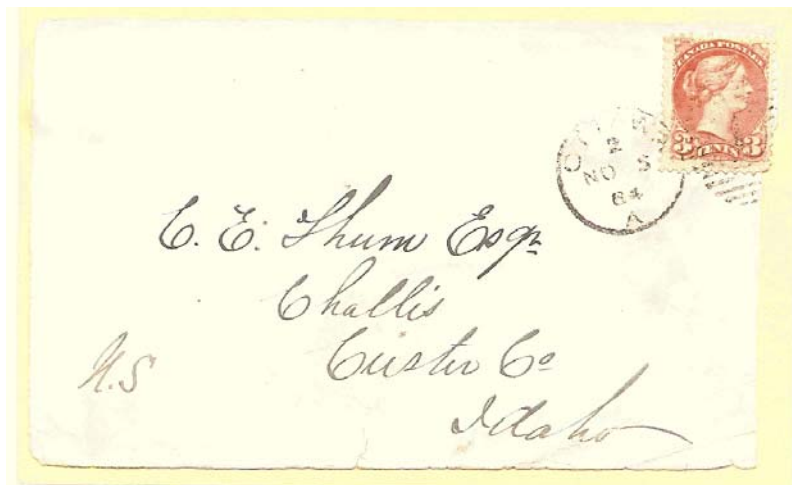 CANADA POSTAGE
3 CENTS 3
OTTAW
2
NO 5
84
A
C. E. Thum Esqr
Challis
Custer Co
U.S
Idaho